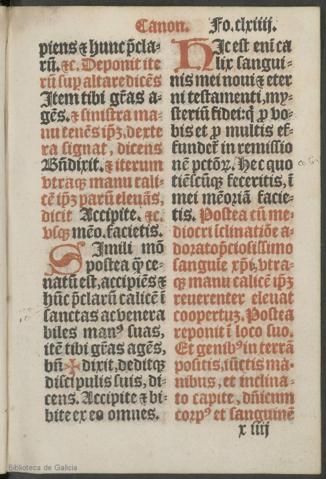 Canon. Fo.clxiiij.
piens ⁊ hunc p̄cla-
rū. ⁊c. Deponit ite
rū sup altare dicēs
Item tibi gr̄as a-
gēs. ⁊ sinistra ma-
nu tenēs ip̄ȝ, dexte
ra signat, dicens
Bn̄dixit. ⁊ iterum
vtraqꝫ manu cali-
cē ip̄ȝ parū eleuās,
dicit Accipite. ⁊c.
vsqꝫ meō. facietis.
Simili mō
postea q̄ ce-
natū est, accipiēs ⁊
hūc p̄clarū calicē ī
sanctas ac venera
biles manꝰ suas,
itē tibi gr̄as agēs,
bn̄✠dixit, deditqꝫ
discipulis suis, di-
cens. Accipite ⁊ bi-
bite ex eo omnes.
Hic est enī ca
lix sangui-
nis mei noui ⁊ eter
ni testamenti, my-
steriū fidei: q̄ ꝓ vo-
bis et ꝓ multis ef-
fundet̄ in remissio
nē pctōꝝ. Hec quo
tiēscūqꝫ feceritis, ī
mei memoriā facie-
tis. Postea cū me-
diocri īclinatiōe a-
dorato p̄ciosissimo
sanguīe xp̄i, vtra-
qꝫ manu calicē ip̄ȝ
reuerenter eleuat
coopertuȝ. Postea
reponit ī loco suo.
Et genibꝰ in terrā
positis, iūctis ma-
nibus, et inclina-
to capite, dn̄icum
corpꝰ et sanguinē
x iiij
Biblioteca de Galicia